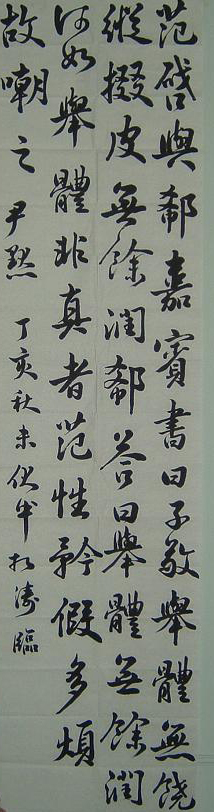 范啓與郗嘉賓書曰子敬舉體無饒
縱掇皮無餘潤郗荅曰舉體無餘潤
何如舉體非真者范性矜假多煩
故嘲之 尹默 丁亥秋末伏牛濤臨